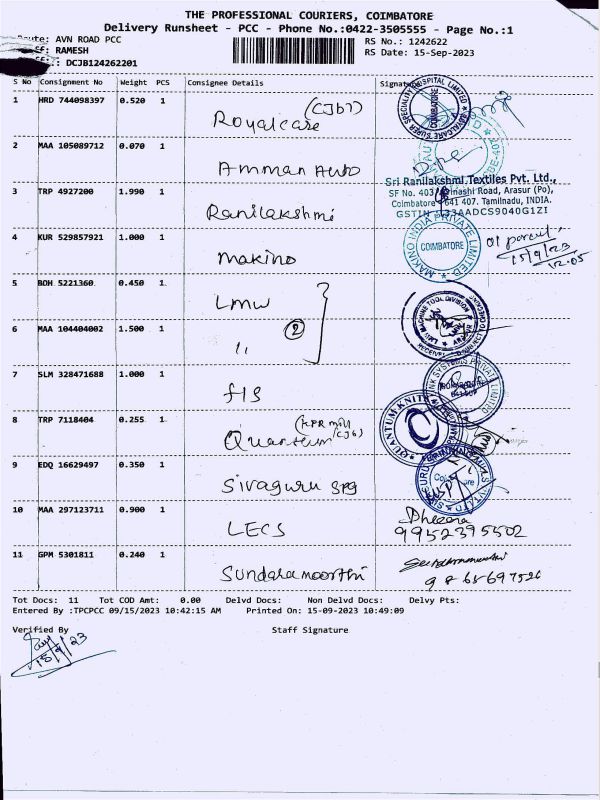 THE PROFESSIONAL COURIERS, COIMBATORE
Delivery Runsheet - PCC - Phone No.:0422-3505555 - Page No.:1
Route: AVN ROAD PCC
RS No.: 1242622
RAMESH
RS Date: 15-Sep-2023
: DCJB124262201
S No Consignment No Weight PCS Consignee Details Signature
1 HRD 744098397 0.520 1 Royalcare (CJB7)
ROYALCARE SUPER SPECIALITY HOSPITAL LIMITED
COIMBATORE
2 MAA 105089712 0.070 1 Amman Auto
3 TRP 4927200 1.990 1 Ranilakshmi
Sri Ranilakshmi Textiles Pvt. Ltd.,
SF No. 403, Avinashi Road, Arasur (Po),
Coimbatore - 641 407. Tamilnadu, INDIA.
GSTIN : 33AADCS9040G1ZI
4 KUR 529857921 1.000 1 Makino
MAKINO INDIA PRIVATE LIMITED
COIMBATORE
01 parcel
15/9/23
12.05
5 BOH 5221360 0.450 1 LMW
2
6 MAA 104404002 1.500 1 "
LMW MACHINE TOOL DIVISION
ARASUR
7 SLM 328471688 1.000 1 FIS
8 TRP 7118404 0.255 1 Quantum (KPR mill CJB)
QUANTUM KNITS
9 EDQ 16629497 0.350 1 Sivaguru spg
10 MAA 297123711 0.900 1 LECS
Dheena
9952395502
11 GPM 5301811 0.240 1 Sundaramoorthi
Tot Docs: 11 Tot COD Amt: 0.00 Delvd Docs: Non Delvd Docs: Delvy Pts:
Entered By :TPCPCC 09/15/2023 10:42:15 AM Printed On: 15-09-2023 10:49:09
Verified By Staff Signature
15/9/23